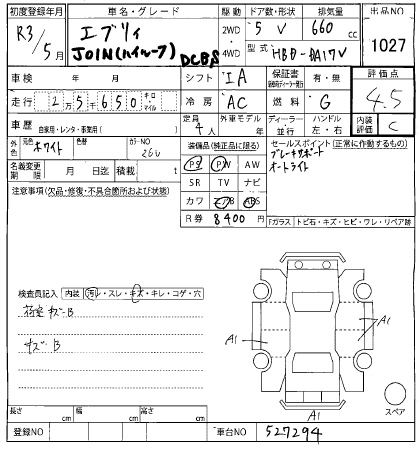 初度登録年月 車名・グレード 駆動 ドア数・形状 排気量 出品NO
R3/5月 エブリィ 2WD 5 V 660 cc 1027
JOIN(ハイルーフ) DCBS 4WD 型式 HBD-DA17V
車検 年 月 シフト IA 保証書 有・無 評価点
走行 2万5千650 キロ・マイル 冷房 AC 燃料 G 4.5
車歴 自家用・レンタ・事業用( ) 定員 4人 外車モデル 年 ディーラー・並行 ハンドル 左・右 内装評価 C
外色 元色 ホワイト 色替 カラーNO 26U 装備品(純正品に限る) セールスポイント(正常に作動するもの)
名義変更期限 月 日迄 積載 t PS PW AW ブレーキサポート
注意事項(欠品・修復・不具合箇所および状態) SR TV ナビ オートライト
カワ エアB ABS
R券 8400 円
Fガラス トビ石・キズ・ヒビ・ワレ・リペア跡
検査員記入 内装 汚レ・スレ・キズ・キレ・コゲ・穴
荷室キズB
キズB
A1
A1
A1
スペア
長さ cm 幅 cm 高さ cm
登録NO 車台NO 527294